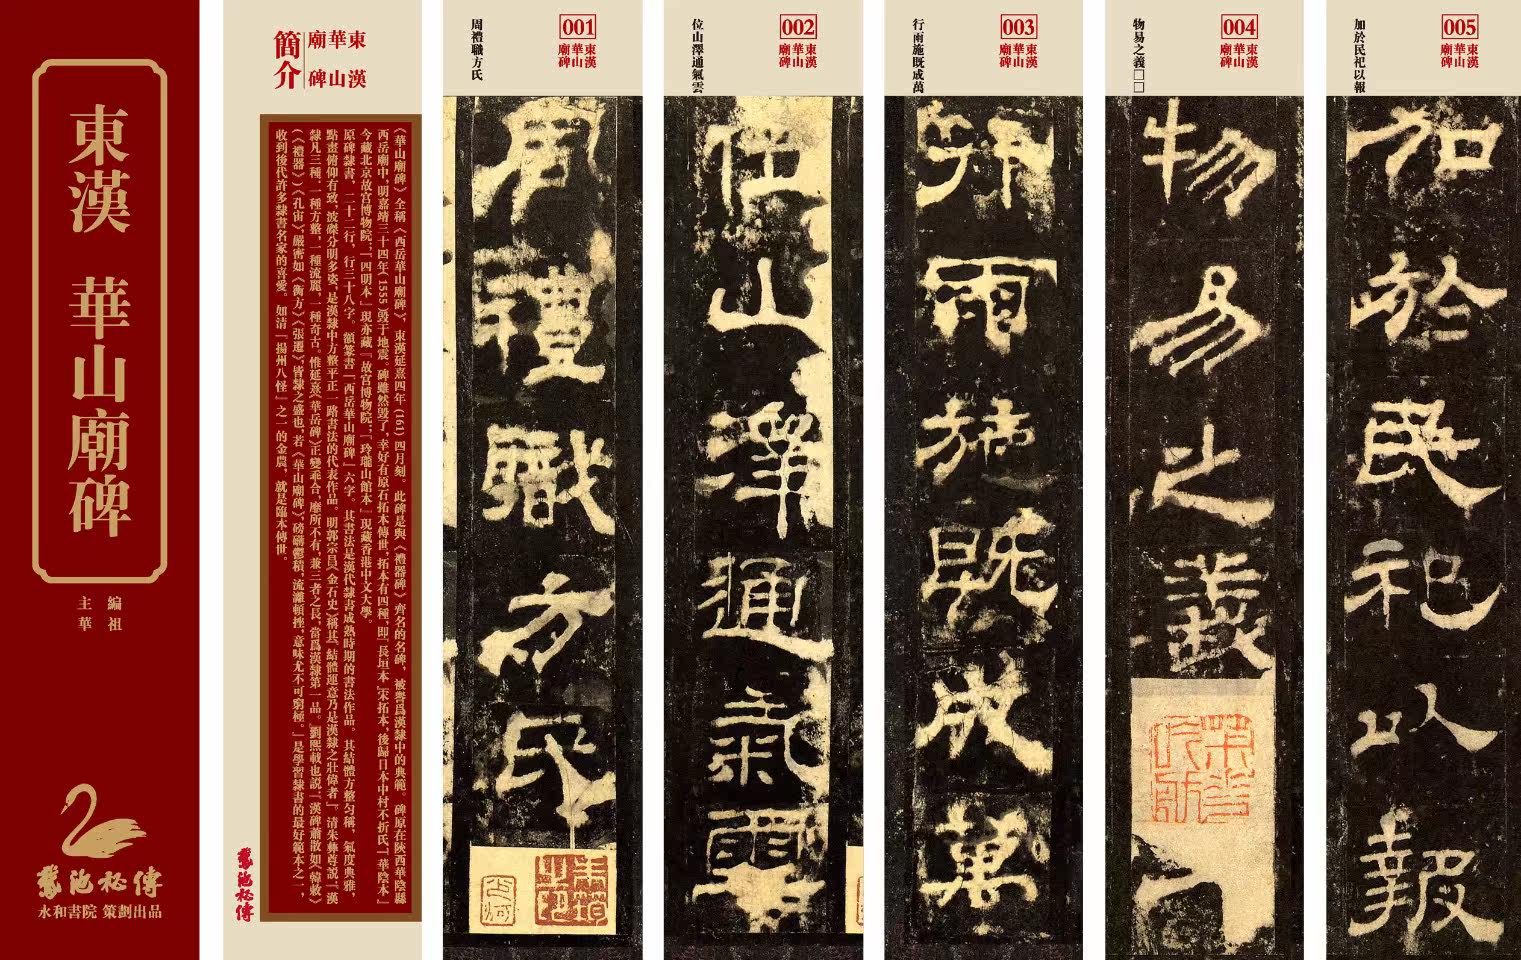 東漢 華山廟碑
主編
華祖
鵞池秘傳
永和書院 策劃出品
東漢
華山
廟碑
簡介
《華山廟碑》全稱《西岳華山廟碑》，東漢延熹四年(161)四月刻。此碑是與《禮器碑》齊名的名碑，被譽爲漢隸中的典範。碑原在陝西華陰縣
西岳廟中，明嘉靖三十四年(1555)毀于地震。碑雖然毀了，幸好有原石拓本傳世，拓本有四種，即『長垣本』宋拓本，後歸日本中村不折氏，『華陰本』
今藏北京故宫博物院；『四明本』現亦藏『故宫博物院；『玲瓏山館本』現藏香港中文大學。
原碑隸書，二十二行，行三十八字。額篆書『西岳華山廟碑』六字。其書法是漢代隸書成熟時期的書法作品。其結體方整勻稱，氣度典雅，
點畫俯仰有致，波磔分明多姿，是漢隸中方整平正一路書法的代表作品。明郭宗昌《金石史》稱其『結體運意乃是漢隸之壯偉者』。清朱彝尊說『漢
隸凡三種，一種方整，一種流麗，一種奇古。惟延熹《華岳碑》正變乖合，靡所不有，兼三者之長，當爲漢隸第一品。』劉熙載也説『漢碑蕭散如《韓敕》
（《禮器》）《孔宙》，嚴密如《衡方》《張遷》，皆隸之盛也，若《華山廟碑》，磅礴鬱積，流灕頓挫，意味尤不可窮極。』是學習隸書的最好範本之一，
收到後代許多隸書名家的喜愛。如清『揚州八怪』之一的金農，就是臨本傳世。
鵞池秘傳
001
東漢
華山
廟碑
周禮職方氏
周禮職方氏
002
東漢
華山
廟碑
位山澤通氣雲
位山澤通氣雲
003
東漢
華山
廟碑
行雨施既成萬
行雨施既成萬
004
東漢
華山
廟碑
物易之義□□
物易之義
005
東漢
華山
廟碑
加於民祀以報
加於民祀以報